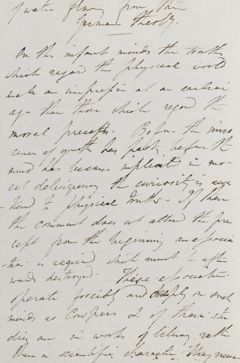 water flowing from their
German theology.
On the infant minds the truths
which regard the physical world
make an impression at an earlier
age than those which regard the
moral precepts. Before the inno
cence of youth has past, before the
mind has become implicated in mo
ral delinquency the curiosity is awa
kened to physical truths. If then
the comment does not attend the pre
cept from the beginning an associa
tion is required which must after
wards destroyed. These associations
operate forcibly and deeply on such
minds as Cowpers & of those who
are in works of literary rath
than a scientific character. They